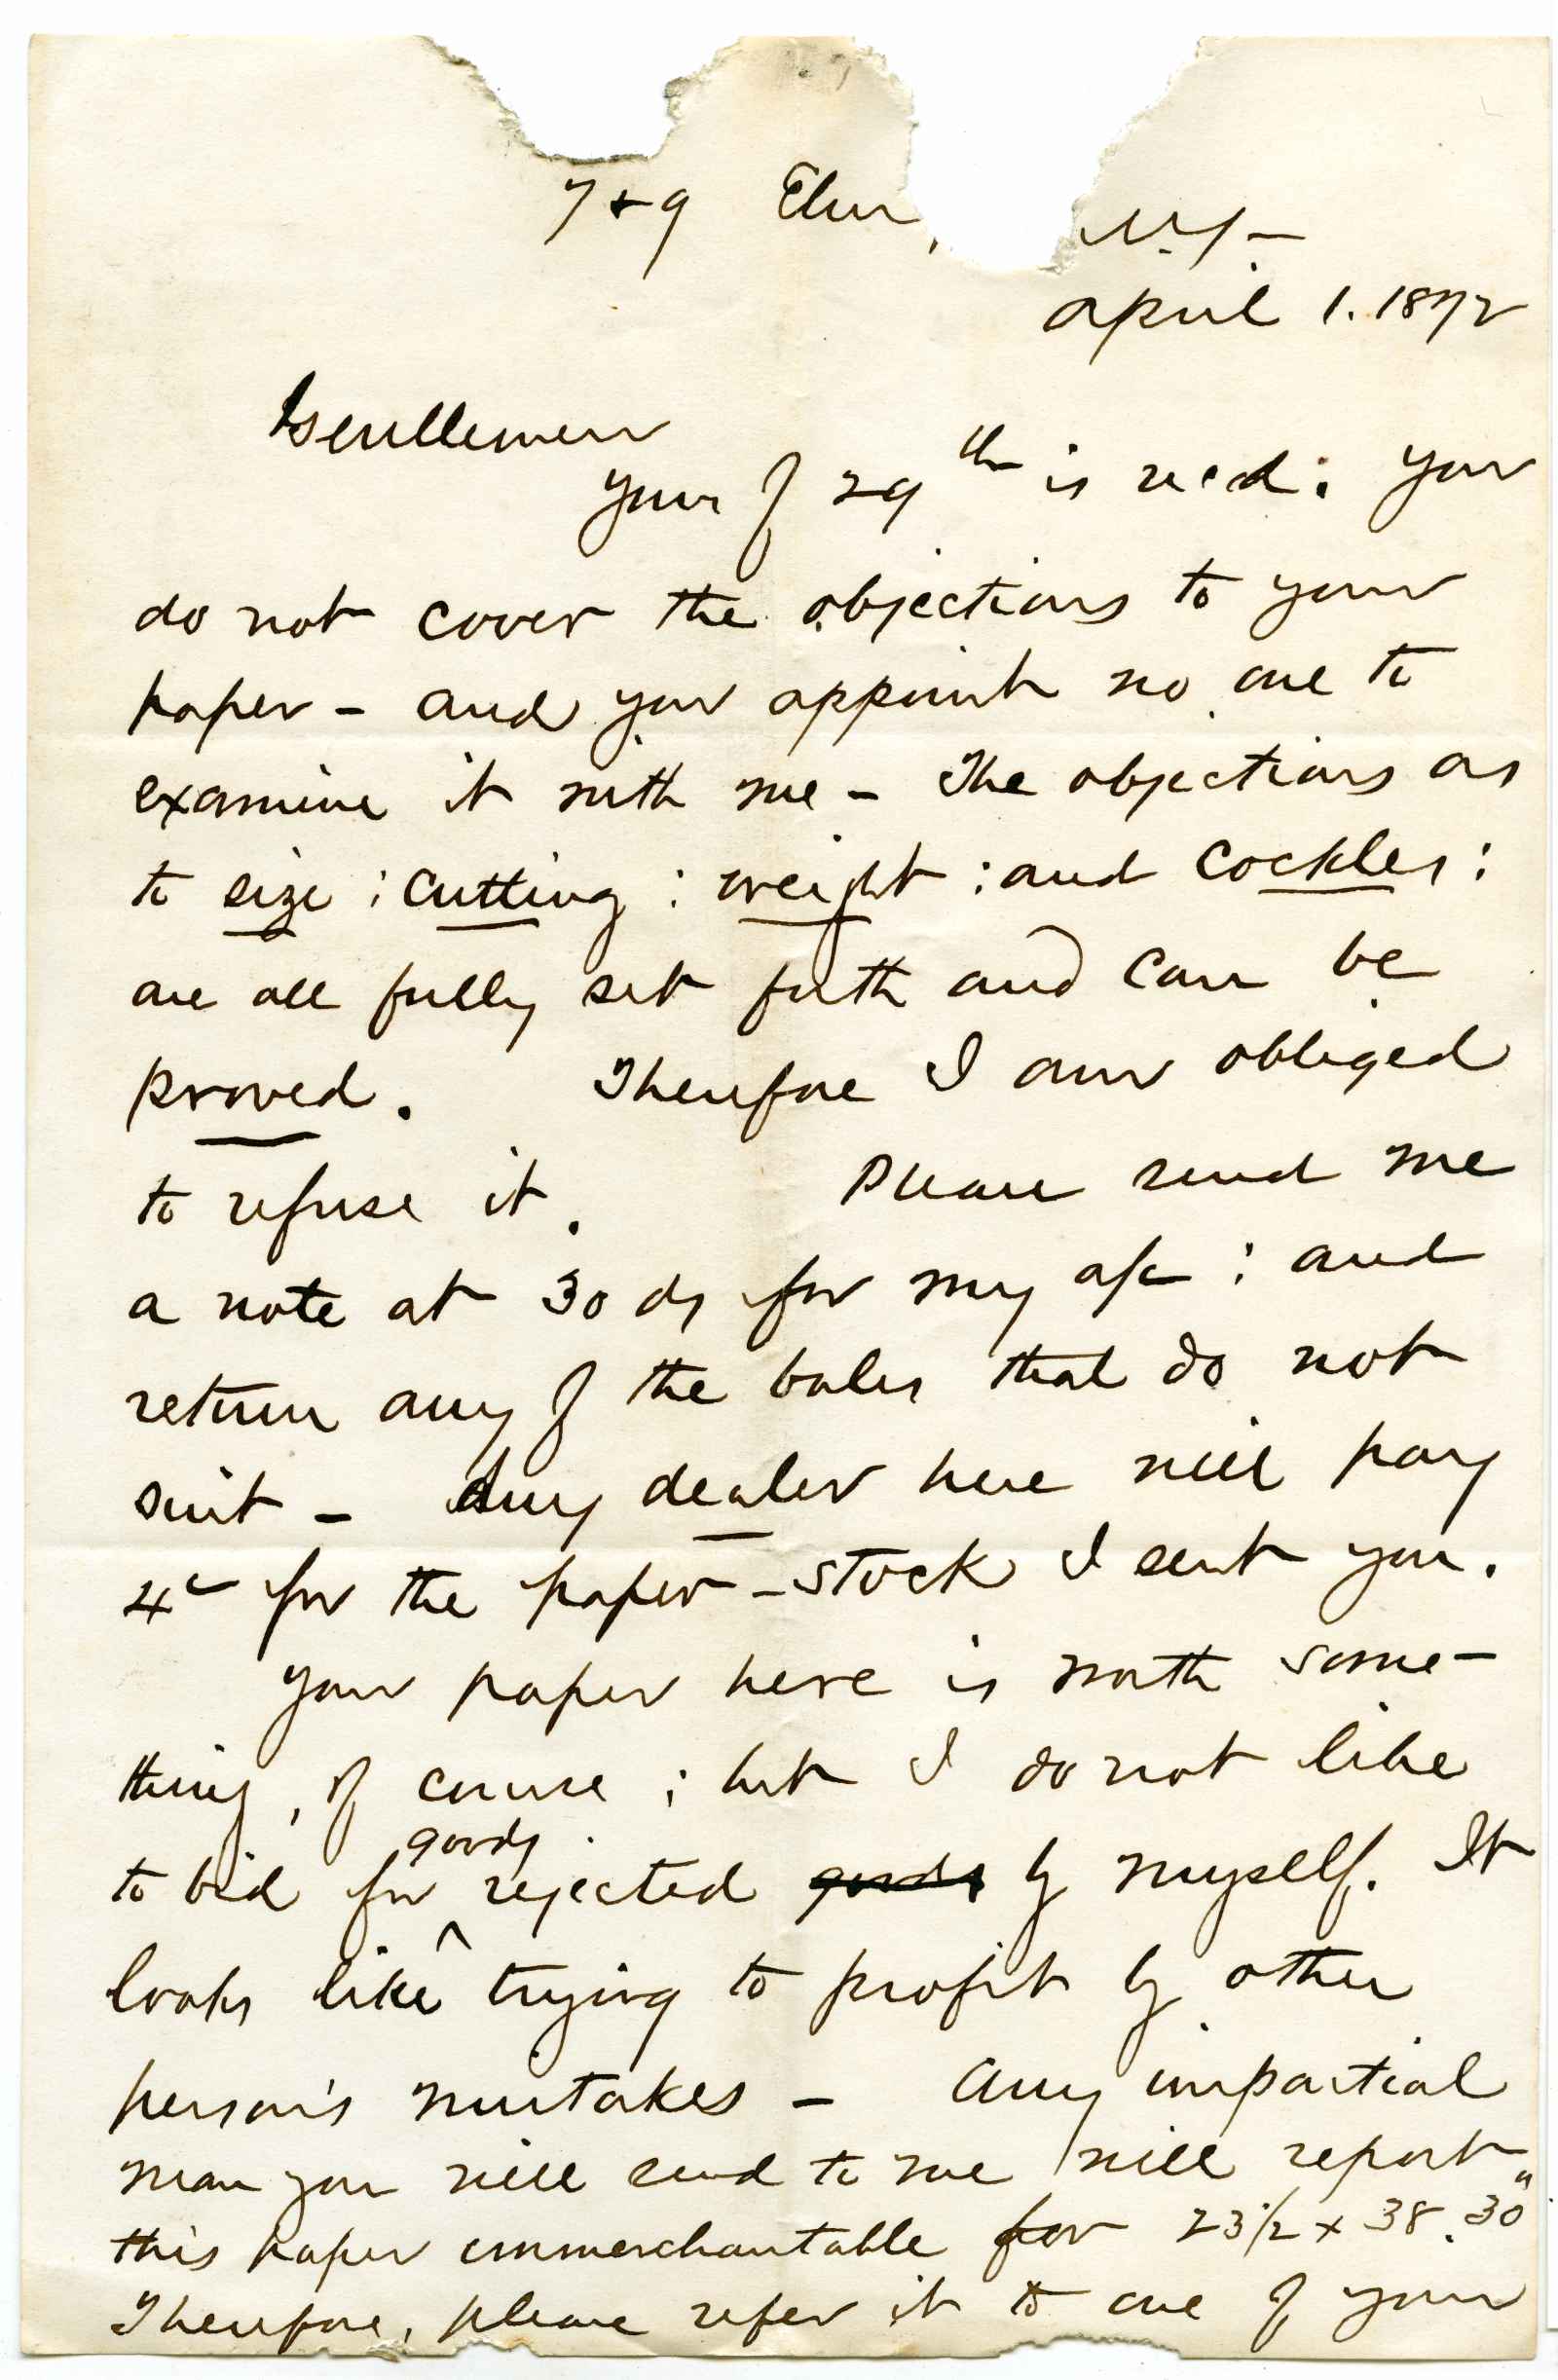 7 + 9 Elm, N.Y. –
April 1. 1872
Gentlemen
Your of 29th is rec'd: You
do not cover the objections to your
paper – and you appoint no one to
examine it with me – The objections as
to size: cutting: weight: and cockles:
are all fully set forth and can be
proved. Therefore I am obliged
to refuse it. Please send me
a note at 30 ds for my a/c: and
return any of the bales that do not
suit – Any dealer here will pay
4c for the paper-stock I sent you.
Your paper here is worth some-
thing, of course; but I do not like
goods
to bid for rejected goods by myself. It
looks like trying to profit by other
person's mistakes – Any impartial
man you will send to me will report
this paper unmerchantable for 23 1/2 x 38. 30"
Therefore, please refer it to one of your